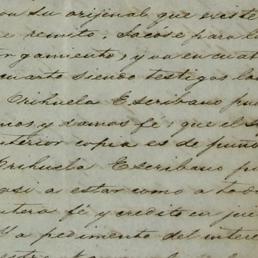 on su orijinal que existe
e remito. Sacose para l
ngamiento, y va en cuat
cuarto siendo testigos l
Orihuela Escribano pu
mos, y damos fé, que el s
nterior copia es de puño
Orihuela Escribano pu
asi a estar como a tod
ntera fé y credito en jui
A pedimento del intere